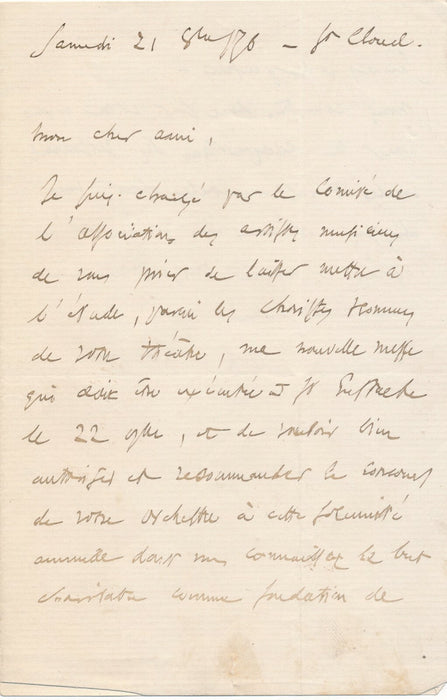 Samedi 21 8bre/76 – St Cloud.
Mon cher ami,
Je suis chargé par le Comité de
l'association des artistes musiciens
de vous prier de laisser mettre à
l'étude, parmi les choristes hommes
de votre théâtre, ma nouvelle messe
qui doit être exécutée à St Eustache
le 22 9bre, et de vouloir bien
autoriser et recommander le concours
de votre orchestre à cette solennité
annuelle dont vous connaissez le but
charitable comme fondation de